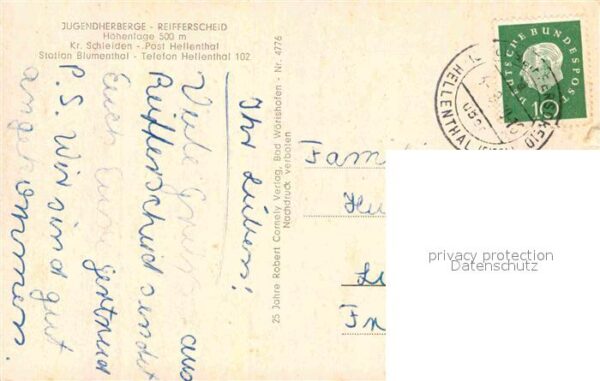 JUGENDHERBERGE - REIFFERSCHEID
Höhenlage 500 m
Kr. Schleiden - Post Hellenthal
Station Blumenthal - Telefon Hellenthal 102
Ihr Lieben!
Viele Grüße aus
Reifferscheid sendet
Euch Eure Gertrud
P.S. Wir sind gut
angekommen.
25 Jahre Robert Cornely Verlag, Bad Wörishofen - Nr. 4776
Nachdruck verboten
DEUTSCHE BUNDESPOST
10
HELLENTHAL (EIFEL)
Fami
privacy protection
Datenschutz